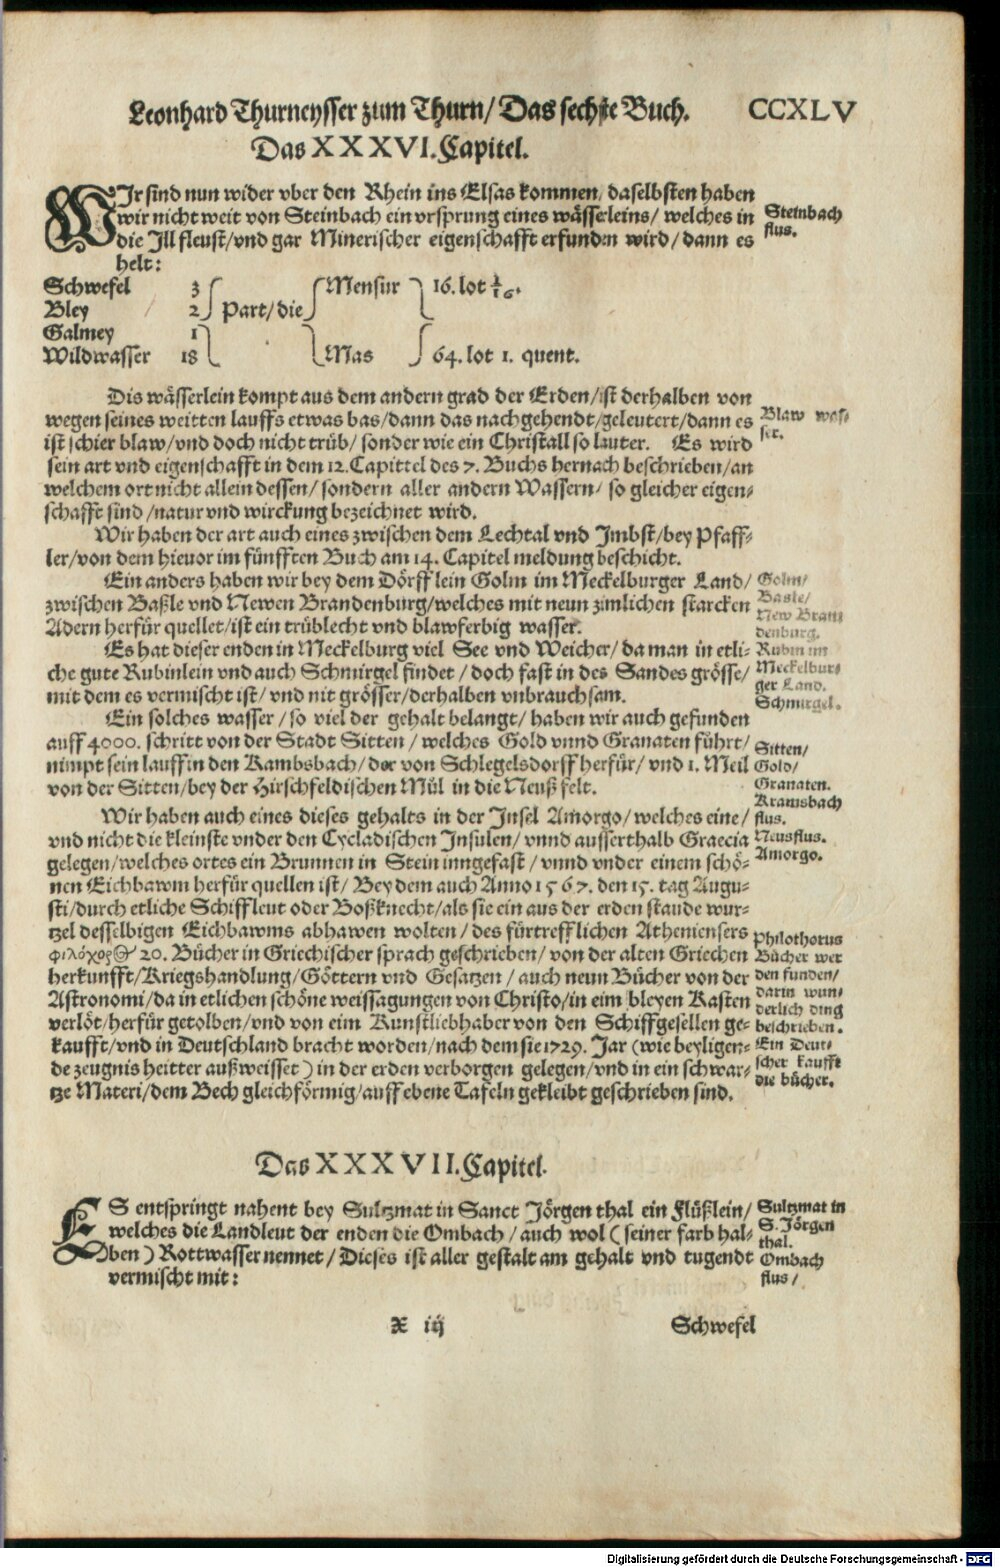 Leonhard Thurneysser zum Thurn/ Das sechste Buch. CCXLV
Das XXXVI. Capitel.
WIr sind nun wider vber den Rhein ins Elsas kommen/ daselbsten haben
wir nicht weit von Steinbach ein vrsprung eines wässerleins/ welches in
die Ill fleust/ vnd gar Minerischer eigenschafft erfunden wird/ dann es
helt:
Steinbach
flus.
Schwefel 3 Mensur 16. lot 1/16.
Bley 2 Part/ die
Galmey 1
Wildwasser 18 Mas 64. lot 1. quent.
Dis wässerlein kompt aus dem andern grad der Erden/ ist derhalben von
wegen seines weitten lauffs etwas bas/ dann das nachgehendt/ geleutert/ dann es
ist schier blaw/ vnd doch nicht trüb/ sonder wie ein Christall so lauter. Es wird
sein art vnd eigenschafft in dem 12. Capittel des 7. Buchs hernach beschrieben/ an
welchem ort nicht allein dessen/ sondern aller andern Wassern/ so gleicher eigen-
schafft sind/ natur vnd wirckung bezeichnet wird.
Blaw was-
ser.
Wir haben der art auch eines zwischen dem Lechtal vnd Imbst/ bey Pfaff-
ler/ von dem hieuor im fünfften Buch am 14. Capitel meldung beschicht.
Ein anders haben wir bey dem Dörfflein Golm im Meckelburger Land/
zwischen Baßle vnd Newen Brandenburg/ welches mit neun zimlichen starcken
Adern herfür quellet/ ist ein trüblecht vnd blawferbig wasser.
Golm/
Basle/
New Bran
denburg.
Es hat dieser enden in Meckelburg viel See vnd Weicher/ da man in etli-
che gute Rubinlein vnd auch Schmirgel findet/ doch fast in des Sandes grösse/
mit dem es vermischt ist/ vnd nit grösser/ derhalben vnbrauchsam.
Rubin im
Meckelbur-
ger Land.
Schmirgel.
Ein solches wasser/ so viel der gehalt belangt/ haben wir auch gefunden
auff 4000. schritt von der Stadt Sitten/ welches Gold vnnd Granaten führt/
nimpt sein lauff in den Rambsbach/ der von Schlegelsdorff herfür/ vnd 1. Meil
von der Sitten/ bey der Hirschfeldischen Mül in die Neuß felt.
Sitten/
Gold/
Granaten.
Kramsbach
flus.
Neusflus.
Amorgo.
Wir haben auch eines dieses gehalts in der Insel Amorgo/ welches eine/
vnd nicht die kleinste vnder den Cycladischen Insulen/ vnnd ausserthalb Graecia
gelegen/ welches ortes ein Brunnen in Stein inngefast/ vnnd vnder einem schö-
nen Eichbawm herfür quellen ist/ Bey dem auch Anno 1567. den 15. tag Augu-
sti/ durch etliche Schiffleut oder Boßknecht/ als sie ein aus der erden staude wur-
tzel desselbigen Eichbawms abhawen wolten/ des fürtrefflichen Atheniensers
φιλόχορος 20. Bücher in Griechischer sprach geschrieben/ von der alten Griechen
herkunfft/ Kriegshandlung/ Göttern vnd Gesatzen/ auch neun Bücher von der
Astronomi/ da in etlichen schöne weissagungen von Christo/ in eim bleyen Kasten
verlöt/ herfür getolben/ vnd von eim Kunstliebhaber von den Schiffgesellen ge-
kaufft/ vnd in Deutschland bracht worden/ nach dem sie 1729. Jar (wie beyligen-
de zeugnis heitter außweisset) in der erden verborgen gelegen/ vnd in ein schwar-
tze Materi/ dem Bech gleichförmig/ auff ebene Tafeln gekleibt geschrieben sind.
Philothorus
Bücher wer
den funden/
darin wun-
derlich ding
beschrieben.
Ein Deut-
scher kaufft
die bücher.
Das XXXVII. Capitel.
ES entspringt nahent bey Sultzmat in Sanct Jörgen thal ein Flüßlein/
welches die Landleut der enden die Ombach/ auch wol (seiner farb hal-
ben) Rottwasser nennet/ Dieses ist aller gestalt am gehalt vnd tugendt
vermischt mit:
Sultzmat in
S. Jörgen
thal.
Ombach
flus/
X iij Schwefel
Digitalisierung gefördert durch die Deutsche Forschungsgemeinschaft - DFG